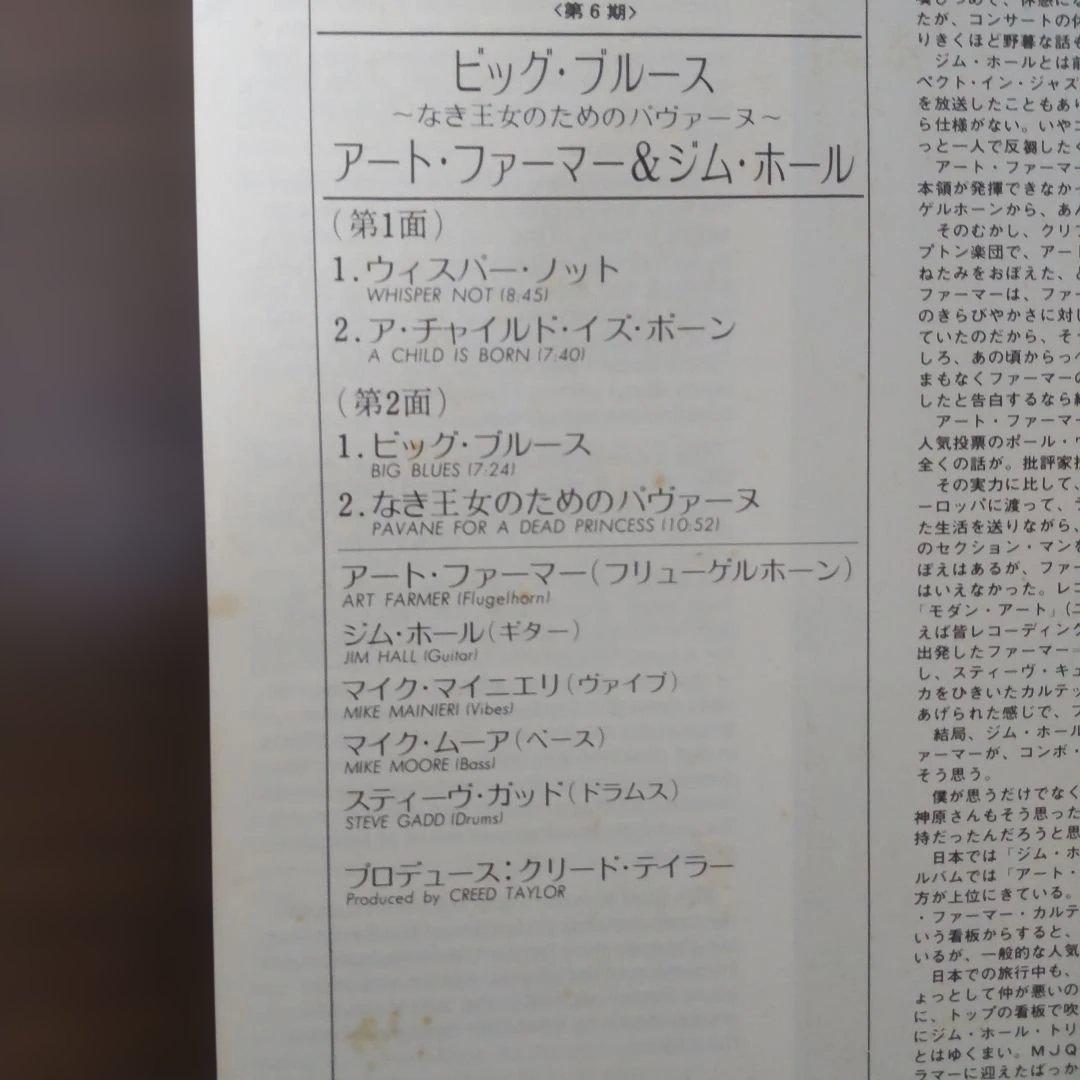 〈第6期〉
ビッグ・ブルース
～なき王女のためのパヴァーヌ～
アート・ファーマー&ジム・ホール
(第1面)
1.ウィスパー・ノット
WHISPER NOT (8:45)
2.ア・チャイルド・イズ・ボーン
A CHILD IS BORN (7:40)
(第2面)
1.ビッグ・ブルース
BIG BLUES (7:24)
2.なき王女のためのパヴァーヌ
PAVANE FOR A DEAD PRINCESS (10:52)
アート・ファーマー(フリューゲルホーン)
ART FARMER (Flugelhorn)
ジム・ホール(ギター)
JIM HALL (Guitar)
マイク・マイニエリ(ヴァイブ)
MIKE MAINIERI (Vibes)
マイク・ムーア(ベース)
MIKE MOORE (Bass)
スティーヴ・ガッド(ドラムス)
STEVE GADD (Drums)
プロデュース:クリード・テイラー
Produced by CREED TAYLOR
たが、コンサートの
りきくほど野暮な話も
ジム・ホールとは前
ペクト・イン・ジャズ
を放送したこともあり
ら仕様がない。いや
っと一人で反芻したく
アート・ファーマー
本領が発揮できなかっ
ゲルホーンから、あん
そのむかし、クリフ
プトン楽団で、アート
ねたみをおぼえた、と
ファーマーは、ファー
のきらびやかさに対し
ていたのだから、そ
しろ、あの頃からっぺ
まもなくファーマーの
したと告白するなら
アート・ファーマー
人気投票のポール・
全くの話が。批評家
その実力に比して、
ーロッパに渡って、
た生活を送りながら、
のセクション・マンを
ぼえはあるが、ファー
はいえなかった。レコ
「モダン・アート」(
えば皆レコーディング
出発したファーマー=
し、スティーヴ・キュ
カをひきいたカルテッ
あげられた感じで、
結局、ジム・ホール
ァーマーが、コンボ・
そう思う。
僕が思うだけでなく
神原さんもそう思った
持だったんだろうと思
日本では「ジム・ホ
ルバムでは「アート・
方が上位にきている。
・ファーマー・カルテ
いう看板からすると、
いるが、一般的な人気
日本での旅行中も、
ょっとして仲が悪いの
に、トップの看板で吹
にジム・ホール・トリ
とはゆくまい。MJQ
ラマーに迎えたばっか